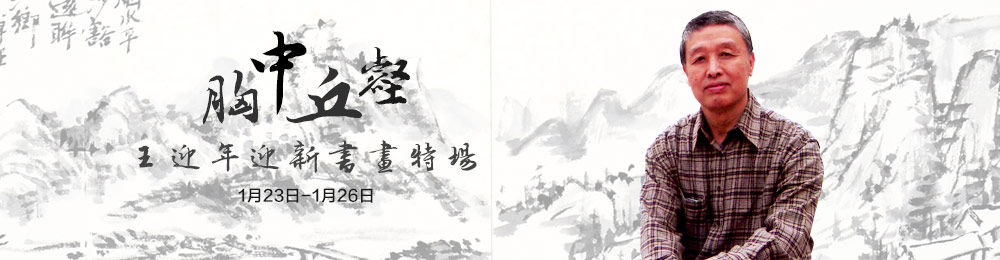 胸中丘壑
王迎年迎新書畫特場
1月23日-1月26日